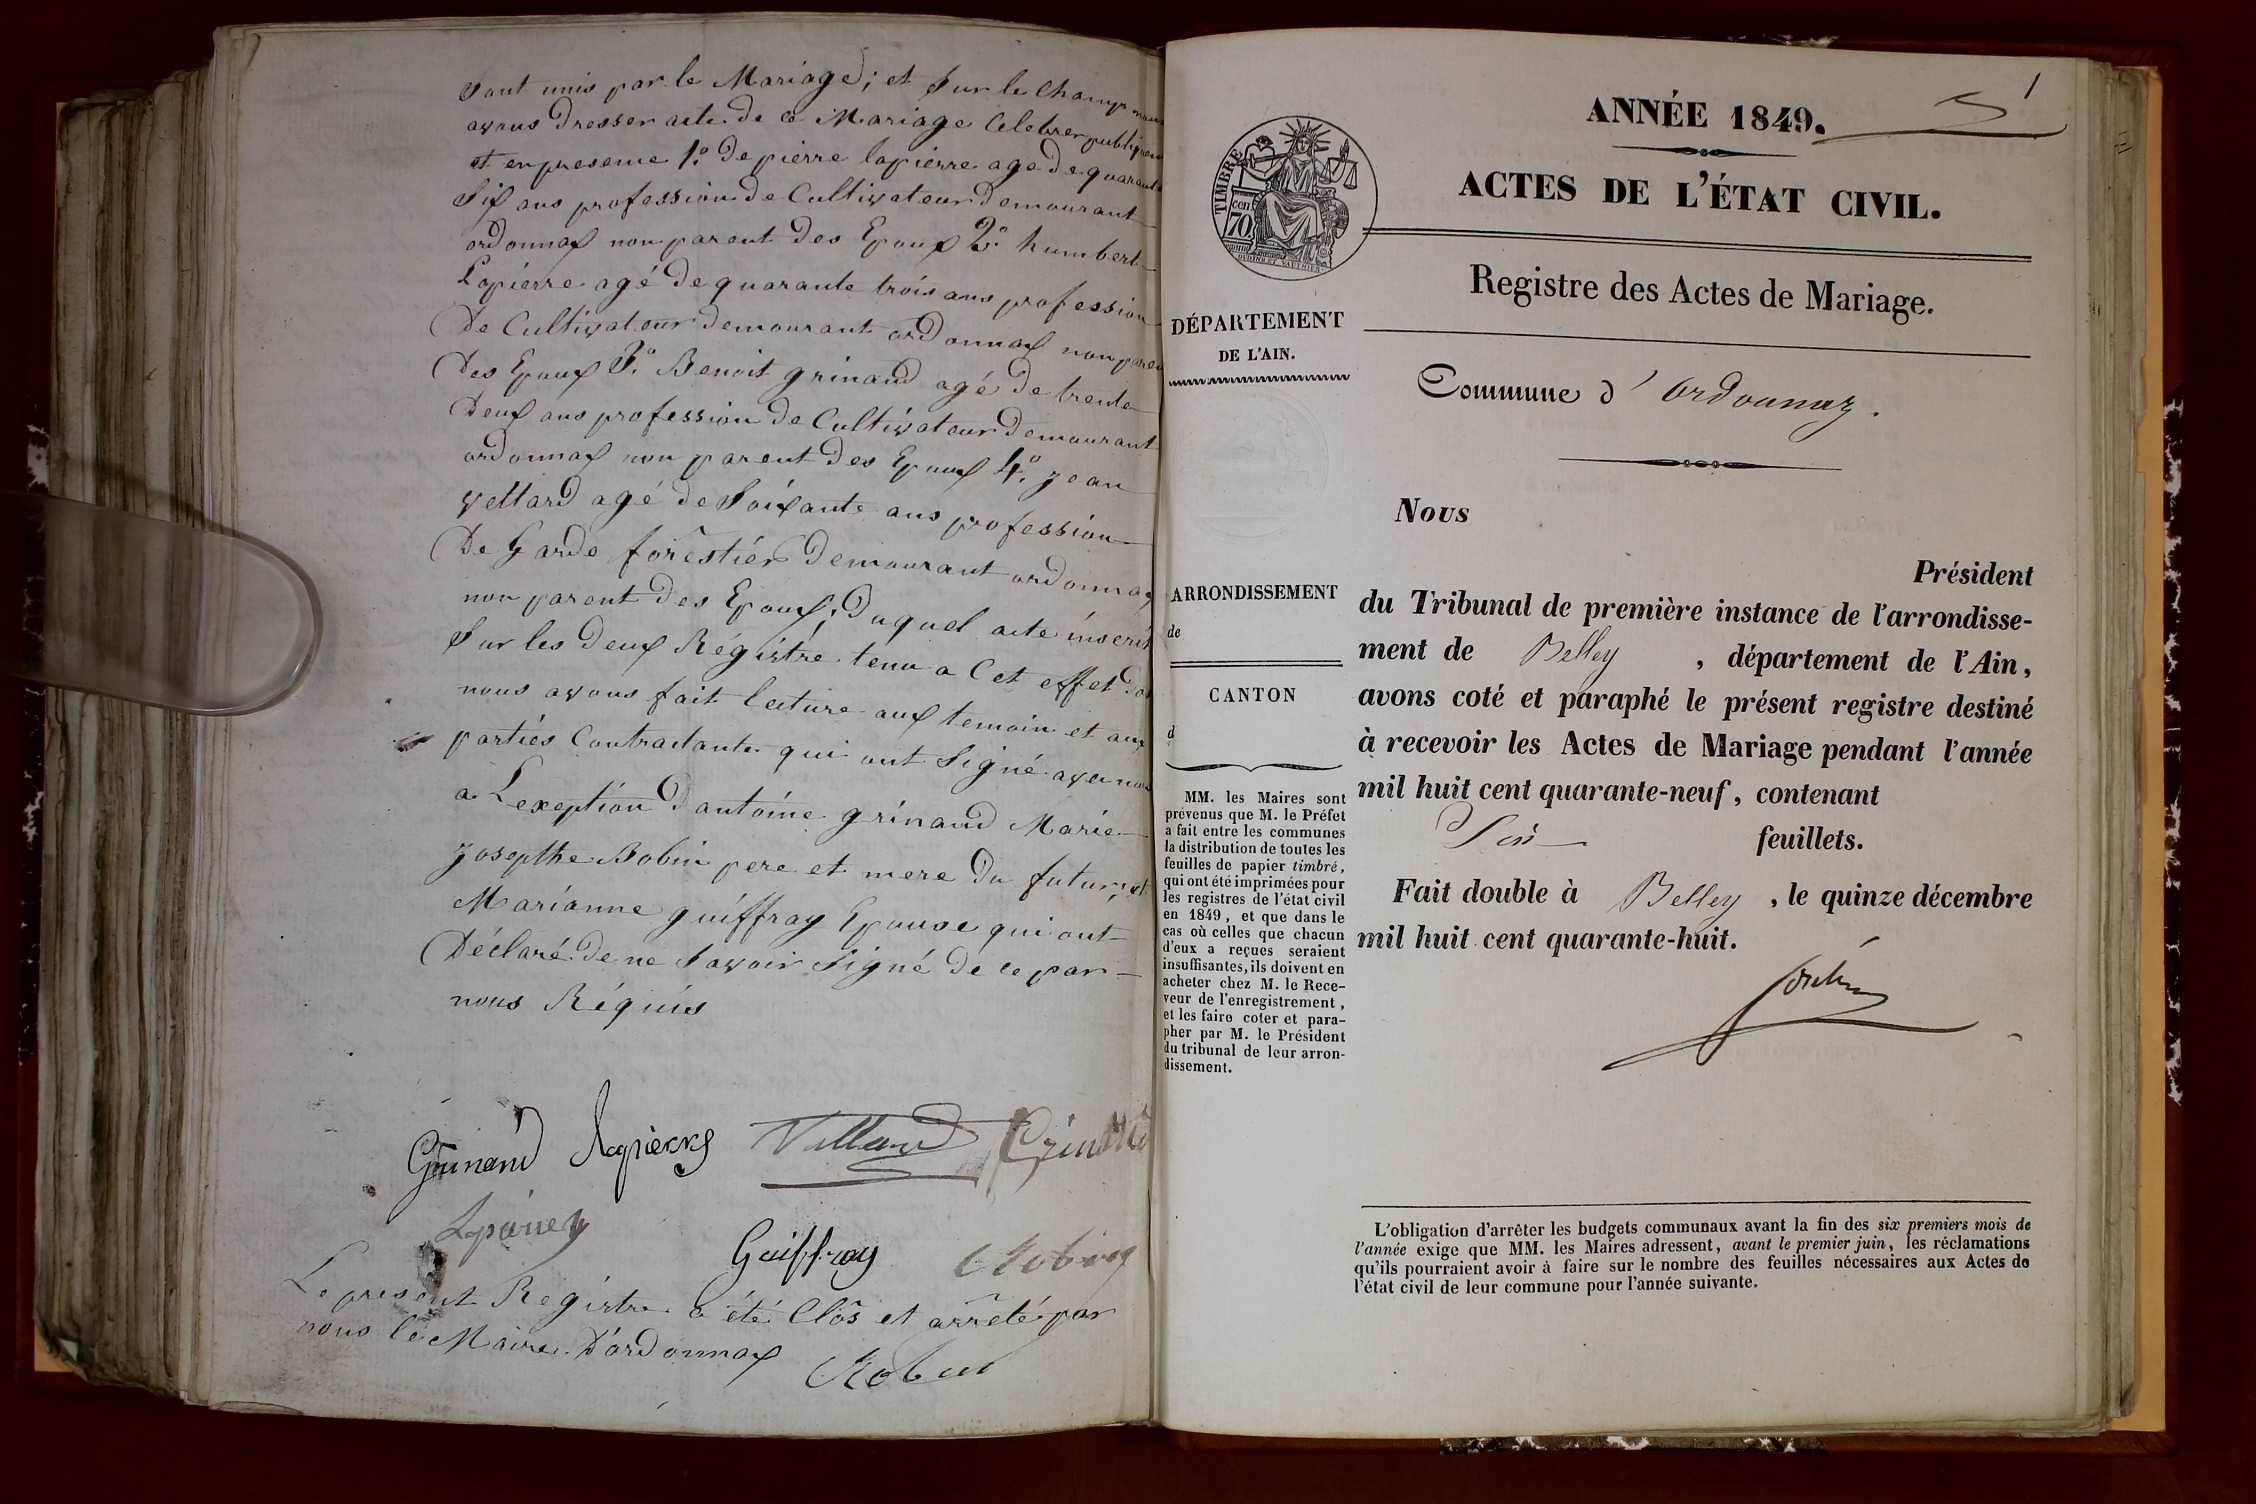 sont unis par le Mariage; et sur le Champ nous
avons dresser acte de ce Mariage Celebrer publiquem
et en presence 1.° de pierre lapierre age de quarante
Six ans profession de Cultivateur demourant
ordonnax non parent des Epoux 2.° humbert
Lapierre agé de quarante trois ans profession
de Cultivateur demourant ordonnax non paren
des Epoux 3.° Benoit grinand agé de trente
deux ans profession de Cultivateur demourant
ordonnax non parent des Epoux 4.° jean
vettard agé de Soixante ans profession
de Garde forestier demourant ordonnax
non parent des Epoux; duquel acte inscrit
Sur les deux Régistre tenu a Cet effet
nous avons fait lecture aux temoin et aux
parties Contractante qui ont Signé avec nous
a L'exeption d'antoine grinand Marie
josepthe Robin pere et mere du futur; et
Marianne guiffray Epouse qui ont
déclaré de ne Savoir Signé de ce par
nous Réquis
Grinand Lapierre Vettard Grinand
Guiffray Robin
Le present Registre a été Clôs et arrêté par
nous le Maire d'ordonnax
Robin
1
ANNÉE 1849.
ACTES DE L'ÉTAT CIVIL.
Registre des Actes de Mariage.
TIMBRE
70 cen.
OUDINE ET VAUTHIER
DÉPARTEMENT
DE L'AIN.
Commune d'Ordonnaz.
Nous
Président
du Tribunal de première instance de l'arrondisse-
ment de Belley, département de l'Ain,
avons coté et paraphé le présent registre destiné
à recevoir les Actes de Mariage pendant l'année
mil huit cent quarante-neuf, contenant
Six feuillets.
Fait double à Belley, le quinze décembre
mil huit cent quarante-huit.
ARRONDISSEMENT
de
CANTON
d
MM. les Maires sont
prévenus que M. le Préfet
a fait entre les communes
la distribution de toutes les
feuilles de papier timbré,
qui ont été imprimées pour
les registres de l'état civil
en 1849, et que dans le
cas où celles que chacun
d'eux a reçues seraient
insuffisantes, ils doivent en
acheter chez M. le Rece-
veur de l'enregistrement,
et les faire coter et para-
pher par M. le Président
du tribunal de leur arron-
dissement.
L'obligation d'arrêter les budgets communaux avant la fin des six premiers mois de
l'année exige que MM. les Maires adressent, avant le premier juin, les réclamations
qu'ils pourraient avoir à faire sur le nombre des feuilles nécessaires aux Actes de
l'état civil de leur commune pour l'année suivante.